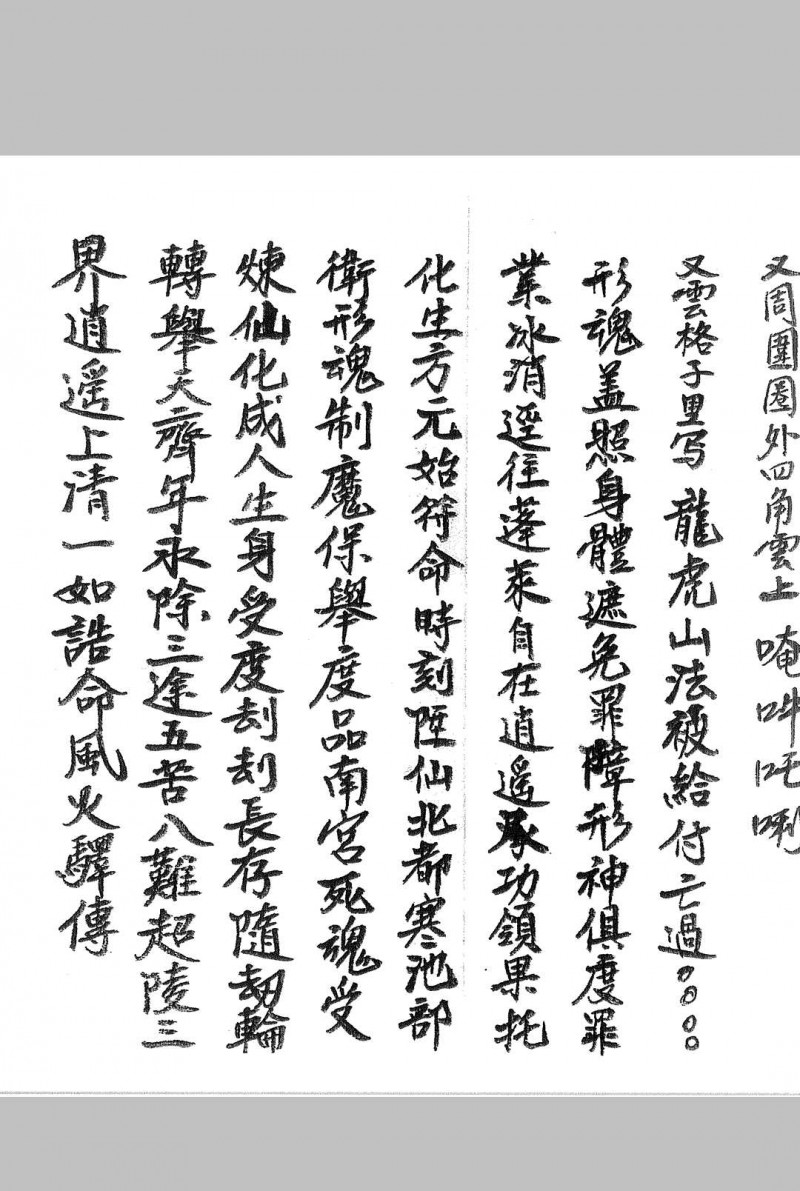 又周圍圈外四角雲上 唵吽吒唎
又雲格子里写 龍虎山法被給付亡過○○○○
形魂盖照身體遮免罪障形神俱度罪
業冰消逕往蓬萊自在逍遥承功領果托
化生方元始符命時刻陞仙北都寒池部
衛形魂制魔保舉度品南宮死魂受
煉仙化成人生身受度刼刼長存隨刼輪
轉舉天齊年永除三途五苦八難超陵三
界逍遥上清一如誥命風火驛傳